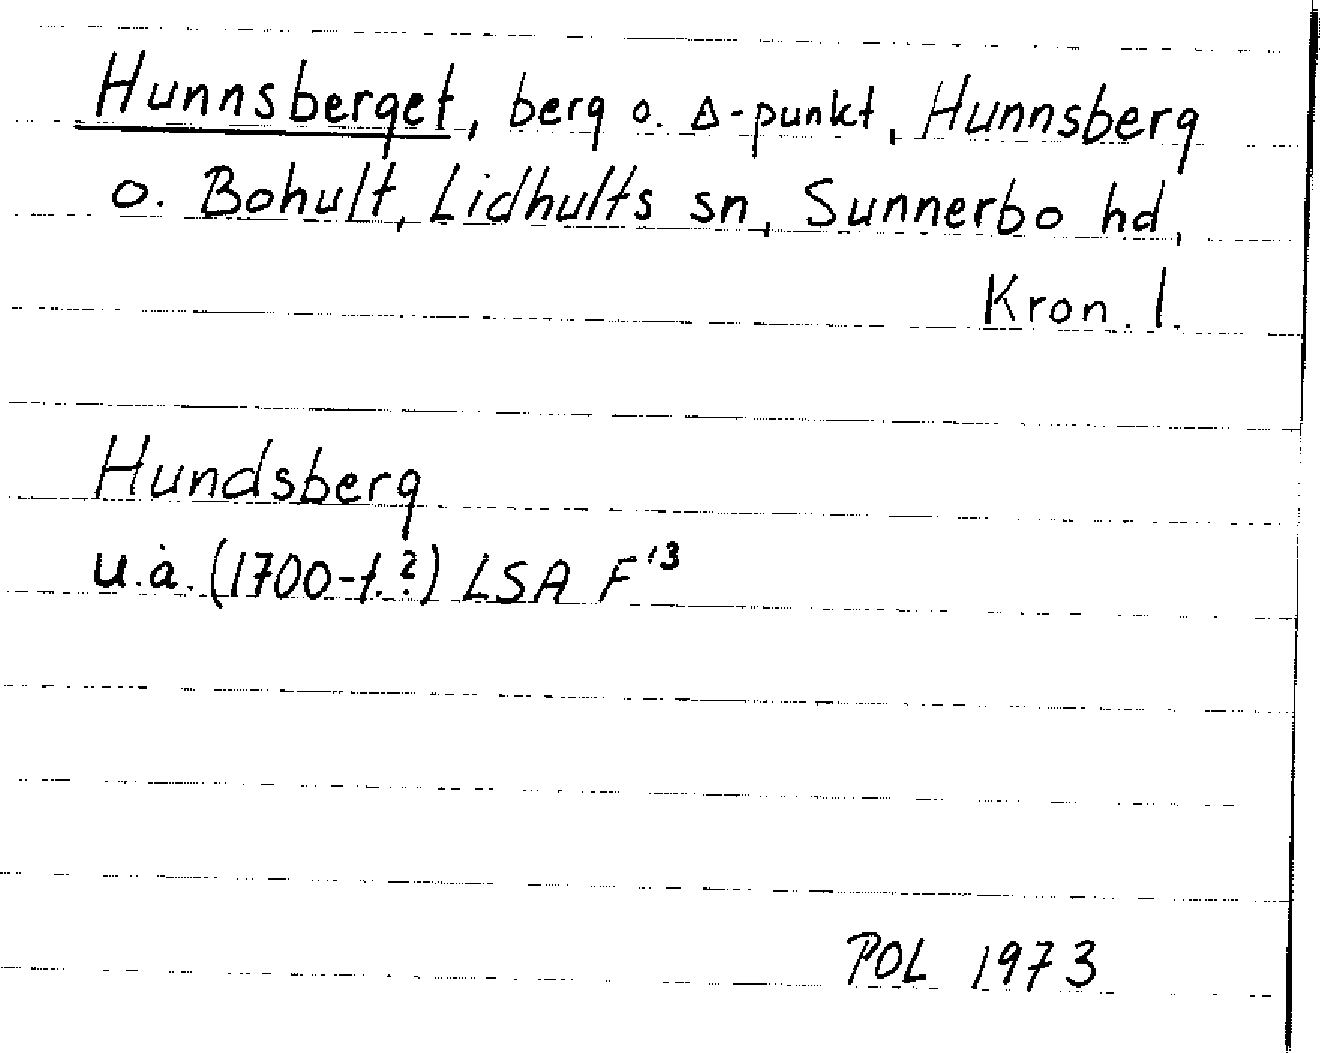 Hunnsberget, berg o. Δ-punkt, Hunnsberg
o. Bohult, Lidhults sn, Sunnerbo hd,
Kron. l.
Hundsberg
u.å. (1700-t.?) LSA F'13
POL 1973